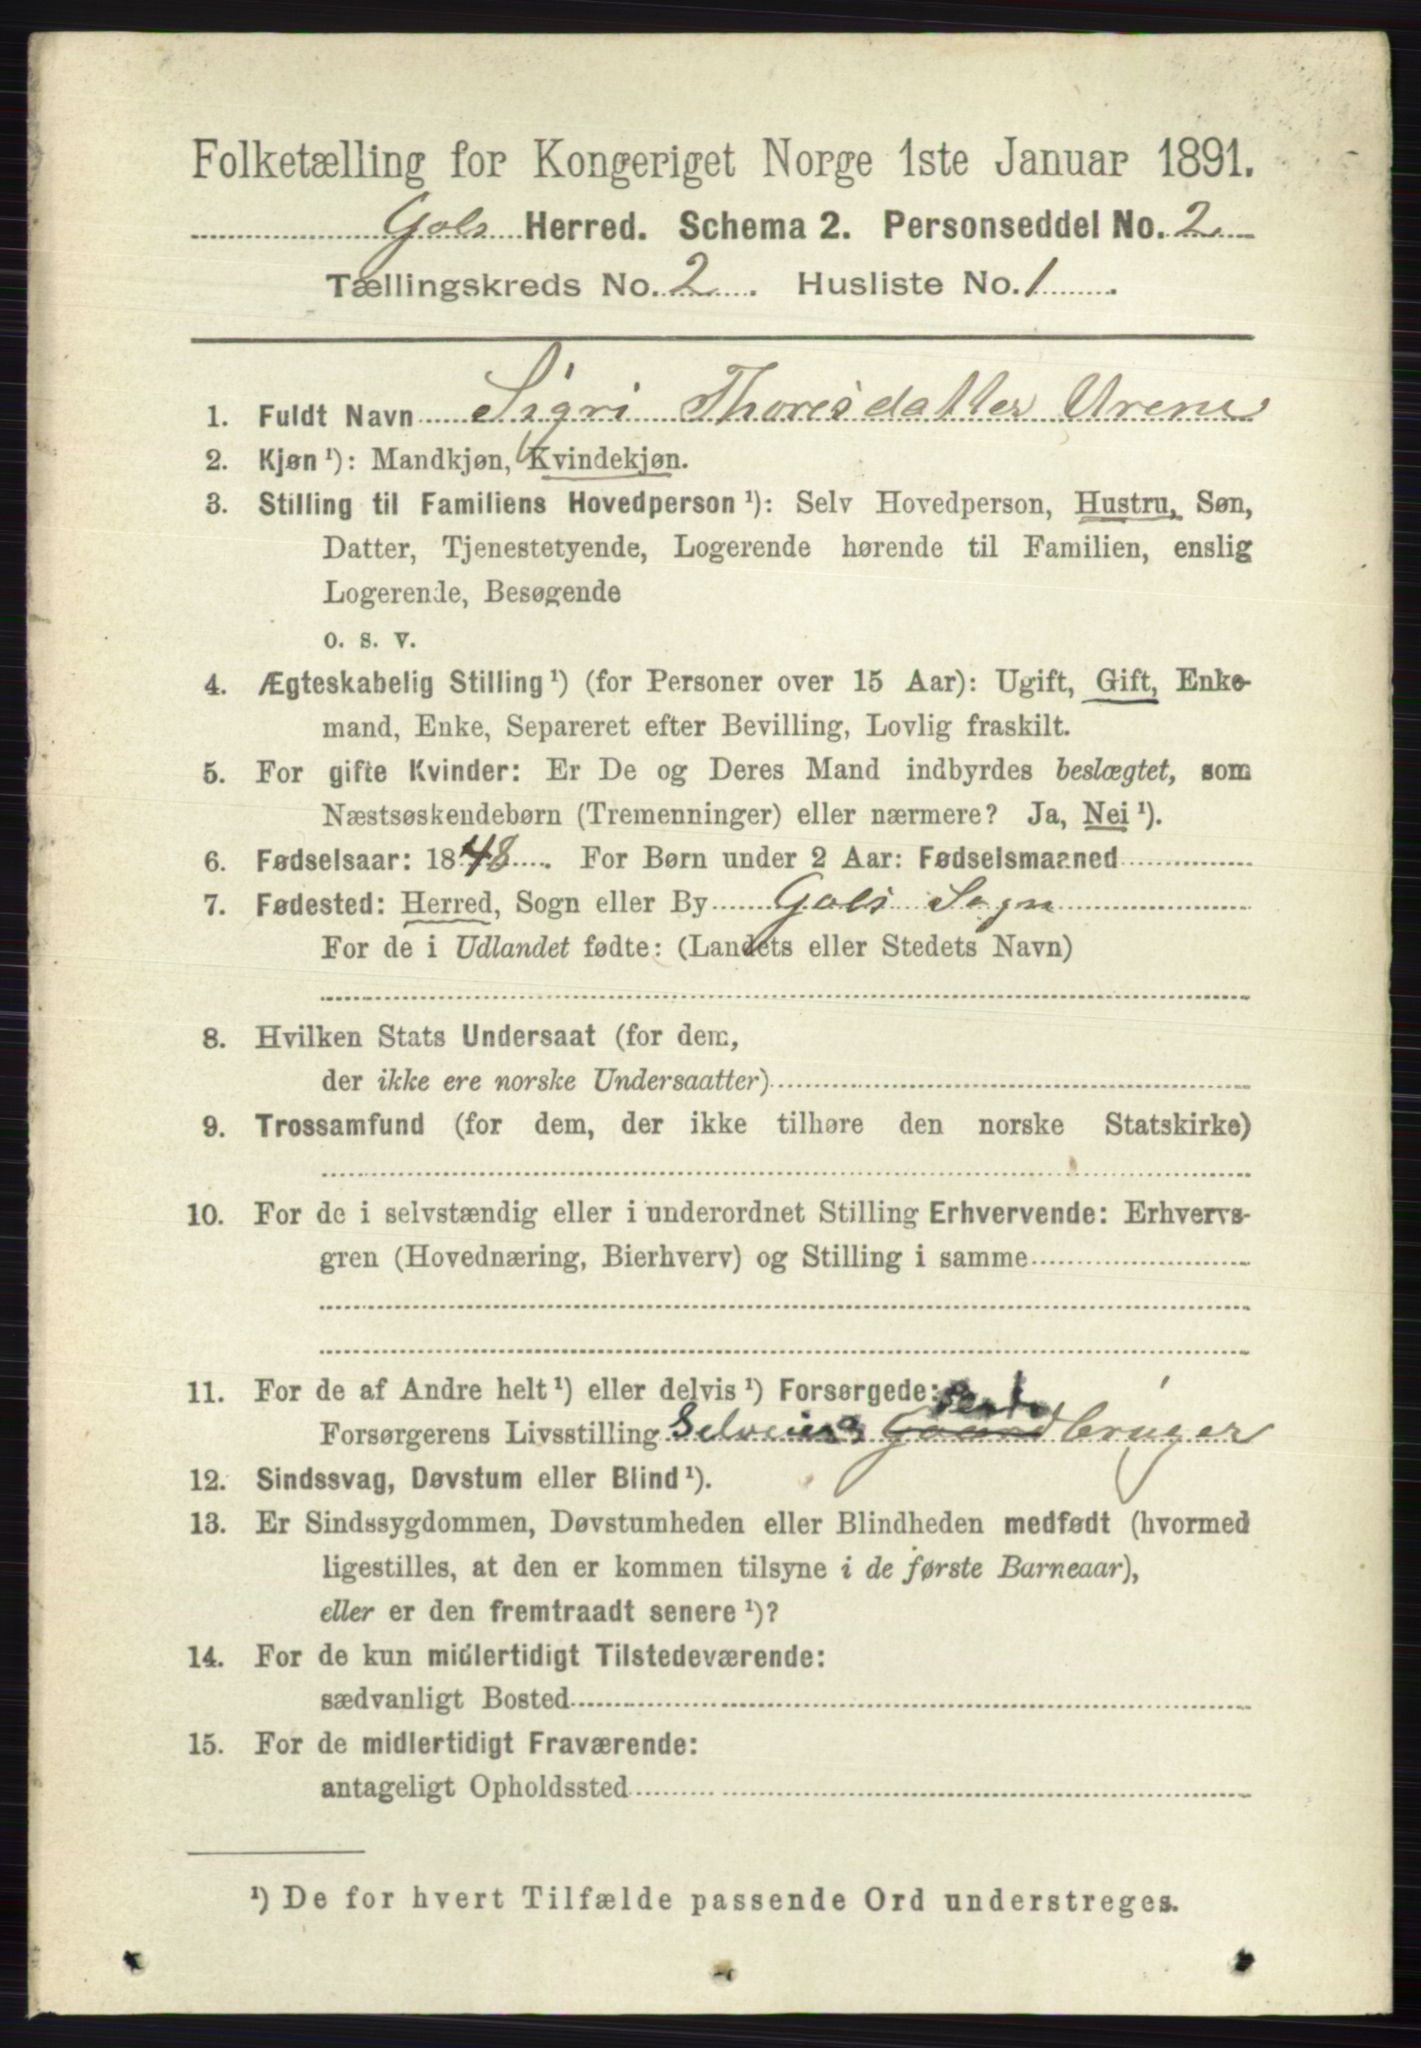 Folketælling for Kongeriget Norge 1ste Januar 1891.
Gols Herred. Schema 2. Personseddel No. 2
Tællingskreds No. 2. Husliste No. 1.
1. Fuldt Navn Sigri Thoresdatter Urene
2. Kjøn ¹): Mandkjøn, Kvindekjøn.
3. Stilling til Familiens Hovedperson ¹): Selv Hovedperson, Hustru, Søn,
Datter, Tjenestetyende, Logerende hørende til Familien, enslig
Logerende, Besøgende
o. s. v.
4. Ægteskabelig Stilling ¹) (for Personer over 15 Aar): Ugift, Gift, Enke-
mand, Enke, Separeret efter Bevilling, Lovlig fraskilt.
5. For gifte Kvinder: Er De og Deres Mand indbyrdes beslægtet, som
Næstsøskendebørn (Tremenninger) eller nærmere? Ja, Nei ¹).
6. Fødselsaar: 1848. For Børn under 2 Aar: Fødselsmaaned
7. Fødested: Herred, Sogn eller By Gols Sogn
For de i Udlandet fødte: (Landets eller Stedets Navn)
8. Hvilken Stats Undersaat (for dem,
der ikke ere norske Undersaatter)
9. Trossamfund (for dem, der ikke tilhøre den norske Statskirke)
10. For de i selvstændig eller i underordnet Stilling Erhvervende: Erhvervs-
gren (Hovednæring, Bierhverv) og Stilling i samme
11. For de af Andre helt ¹) eller delvis ¹) Forsørgede:
Forsørgerens Livsstilling Selveier Gaardbruger
12. Sindssvag, Døvstum eller Blind ¹).
13. Er Sindssygdommen, Døvstumheden eller Blindheden medfødt (hvormed
ligestilles, at den er kommen tilsyne i de første Barneaar),
eller er den fremtraadt senere ¹)?
14. For de kun midlertidigt Tilstedeværende:
sædvanligt Bosted
15. For de midlertidigt Fraværende:
antageligt Opholdssted
¹) De for hvert Tilfælde passende Ord understreges.